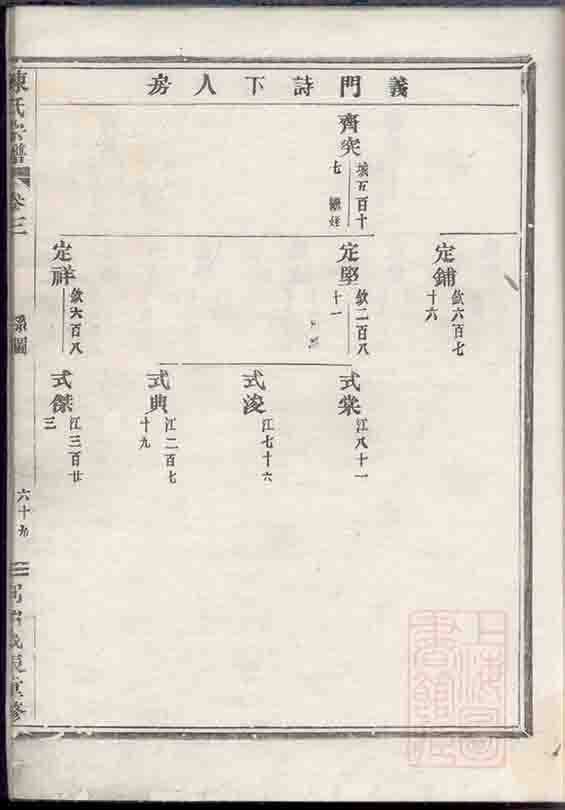 義門詩下八房
齊突
城五百十
七 繼姪
定鋪
欽六百七
十六
定堅
欽二百八
十一
定祥
欽六百八
式棠
江八十一
式浚
江七十六
式典
江二百七
十九
式傑
江三百廿
三
陳氏宗譜
卷三
孫圖
六十九
重修
上海圖
書館藏